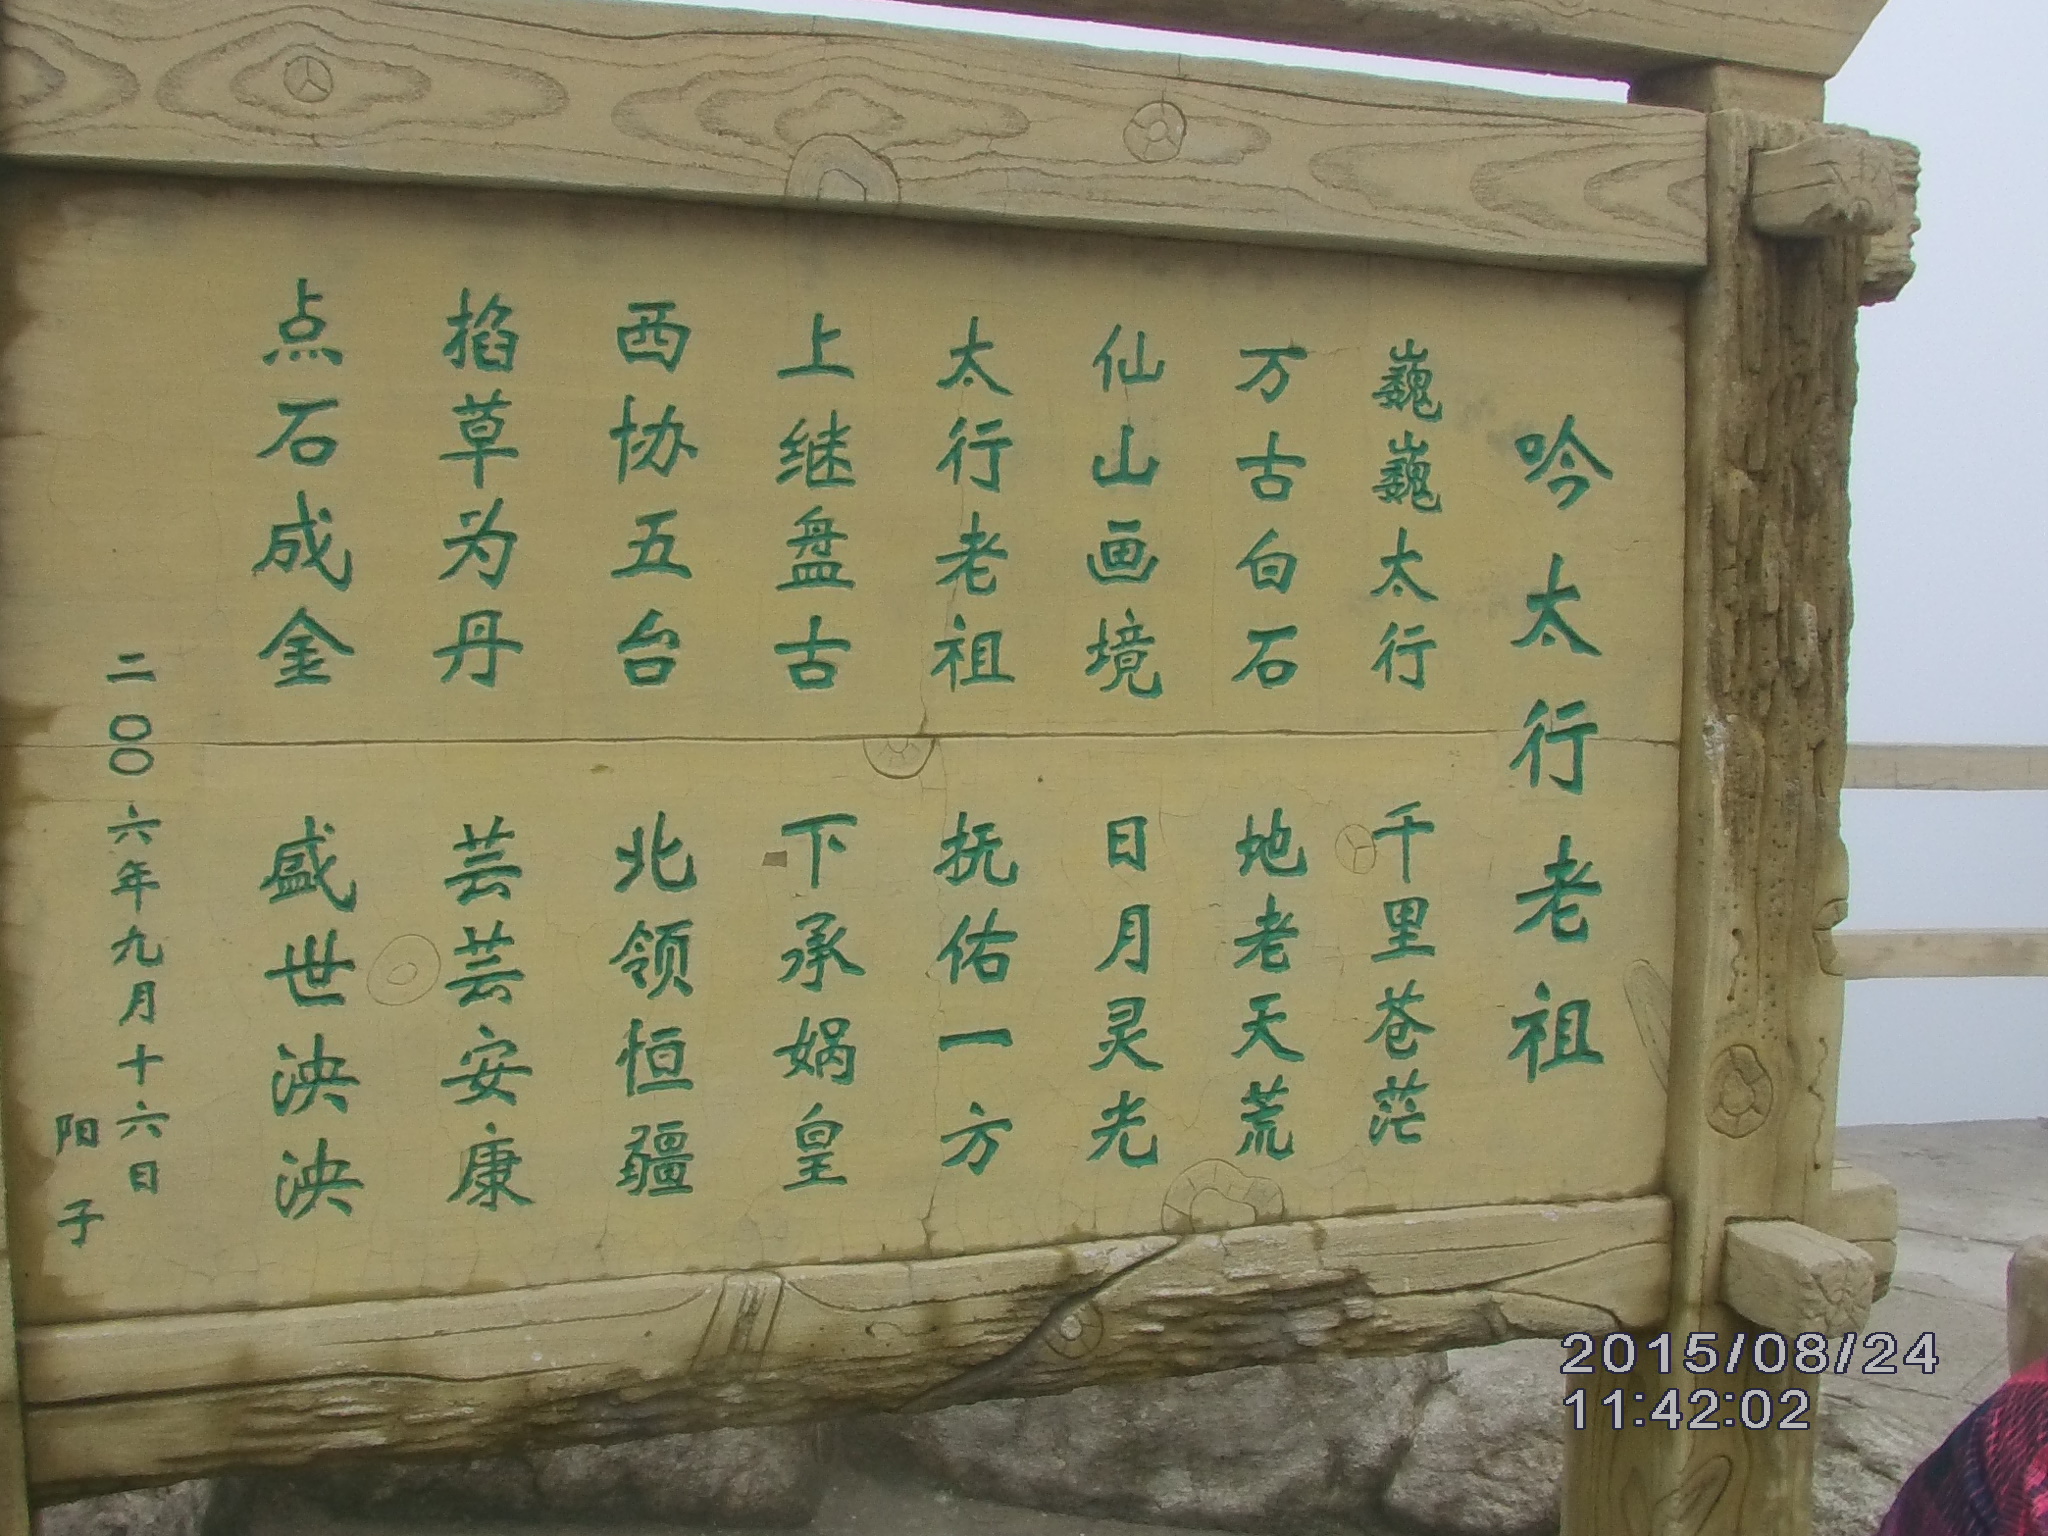 吟太行老祖
巍巍太行 千里苍茫
万古白石 地老天荒
仙山画境 日月灵光
太行老祖 抚佑一方
上继盘古 下承娲皇
西协五台 北领恒疆
掐草为丹 芸芸安康
点石成金 盛世泱泱
二〇〇六年九月十六日
阳子
2015/08/24
11:42:02